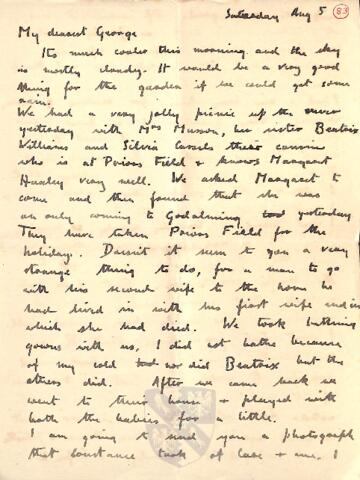 Saturday Aug 5 (83)
My dearest George
Its much cooler this morning and the sky
is mostly cloudy. It would be a very good
thing for the garden if we could get some
rain.
We had a very jolly picnic up the river
yesterday with Mrs Musson, her sister Beatrix
Williams and Silvia their cousin
who is at Priors Field & knows Margaret
Huxley very well. We asked Margaret to
come and then found that she was
only coming to Godalming yesterday
They have taken Priors Field for the
holidays. Doesnt it seem to you a very
strange thing to do, for a man to go
with his second wife to the home he
had lived in with his first wife and in
which she had died. We took bathing
gowns with us, I did not bathe because
of my cold nor did Beatrix but the
others did. After we came back we
went to their house & played with
both the babies for a little.
I am going to send you a photograph
that Constance took of Clare & me. I